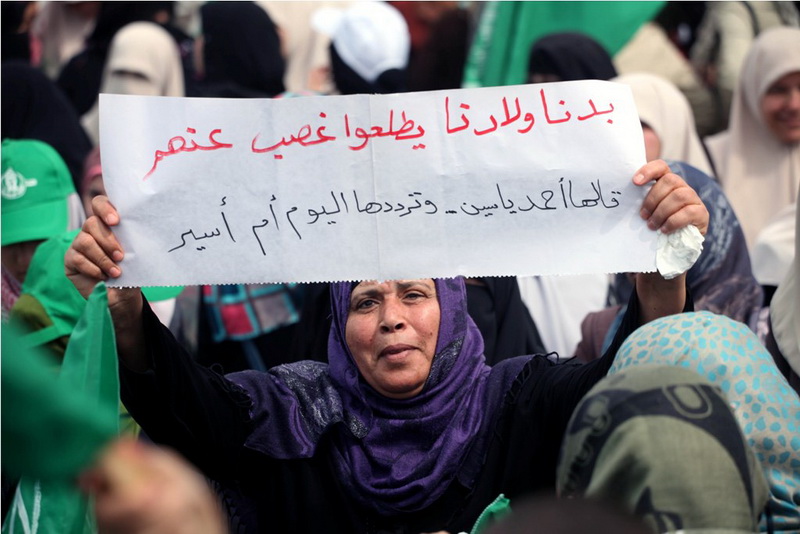 بدنا ولادنا يطلعوا غصب عنهم
قالها أحمد ياسين.. وترددها اليوم أم أسير